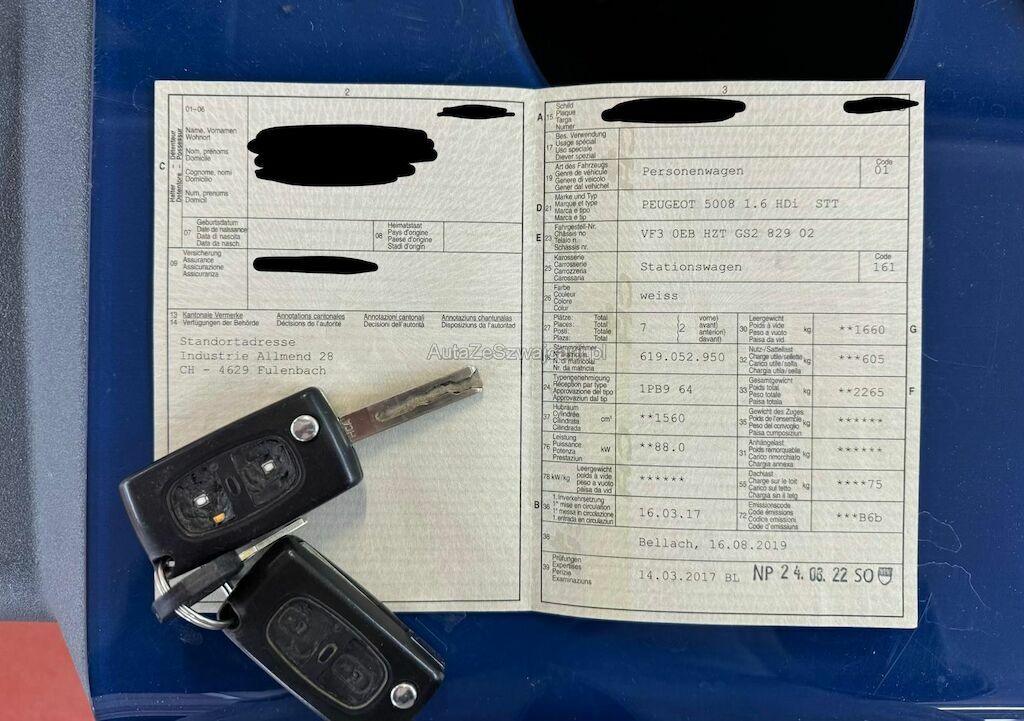 2
01–06
Halter – Détenteur
Detentore – Possessur
C
Name, Vornamen
Wohnort
Nom, prénoms
Domicile
Cognome, nomi
Domicilio
Num, prenums
Domicil
07
Geburtsdatum
Date de naissance
Data di nascita
Data da nasch.
08
Heimatstaat
Pays d'origine
Paese d'origine
Stadi d'origin
09
Versicherung
Assurance
Assicurazione
Assicuranza
13 Kantonale Vermerke Annotations cantonales Annotazioni cantonali Annotaziuns chantunalas
14 Verfügungen der Behörde Décisions de l'autorité Decisioni dell'autorità Disposiziuns da l'autoritad
Standortadresse
Industrie Allmend 28
CH - 4629 Fulenbach
3
A 15 Schild
Plaque
Targa
Numer
17 Bes. Verwendung
Usage spécial
Uso speciale
Diever spezial
19 Art des Fahrzeugs
Genre de véhicule
Genere di veicolo
Gener dal vehichel
Personenwagen
Code
01
D 21 Marke und Typ
Marque et type
Marca e tipo
Marca e tip
PEUGEOT 5008 1.6 HDi STT
E 23 Fahrgestell-Nr.
Châssis no
Telaio n.
Schassis nr.
VF3 0EB HZT GS2 829 02
25 Karosserie
Carrosserie
Carrozzeria
Carossaria
Stationswagen
Code
161
26 Farbe
Couleur
Colore
Colur
weiss
27 Plätze: Total
Places: Total
Posti: Totale
Plazs: Total
7 (2 vorne)
avant)
anteriori)
davant)
30 Leergewicht
Poids à vide
Peso a vuoto
Paisa da vid
kg
**1660
G
Stammnummer
N. di matricola
Nr. da matricla
619.052.950
32 Nutz-/Sattellast
Charge utile/sellette
Carico utile/sella
Chargia utila/sella
kg
***605
24 Typengenehmigung
Réception par type
Approvazione del tipo
Approvaziun dal tip
1PB9 64
33 Gesamtgewicht
Poids total
Peso totale
Paisa totala
kg
**2265
F
37 Hubraum
Cylindrée
Cilindrata
Cilindrada
cm³
**1560
35 Gewicht des Zuges
Poids de l'ensemble
Peso del convoglio
Paisa cumposiziun
kg
******
76 Leistung
Puissance
Potenza
Prestaziun
kW
**88.0
31 Anhängelast
Poids remorquable
Carico rimorchiato
Chargia annexa
kg
******
78 kW/kg
Leergewicht
poids à vide
peso a vuoto
paisa da vid
******
55 Dachlast
Charge sur le toit
Carico sul tetto
Chargia sin il tetg
kg
****75
B 36 1. Inverkehrsetzung
1re mise en circulation
1a messa in circolazione
1. entrada en circulaziun
16.03.17
72 Emissionscode
Code émissions
Codice emissioni
Code d'emissiuns
***B6b
38
Bellach, 16.08.2019
39 Prüfungen
Expertises
Perizie
Examinaziuns
14.03.2017 BL NP 24.03.22 SO
AutaZeSzwajcarii.pl